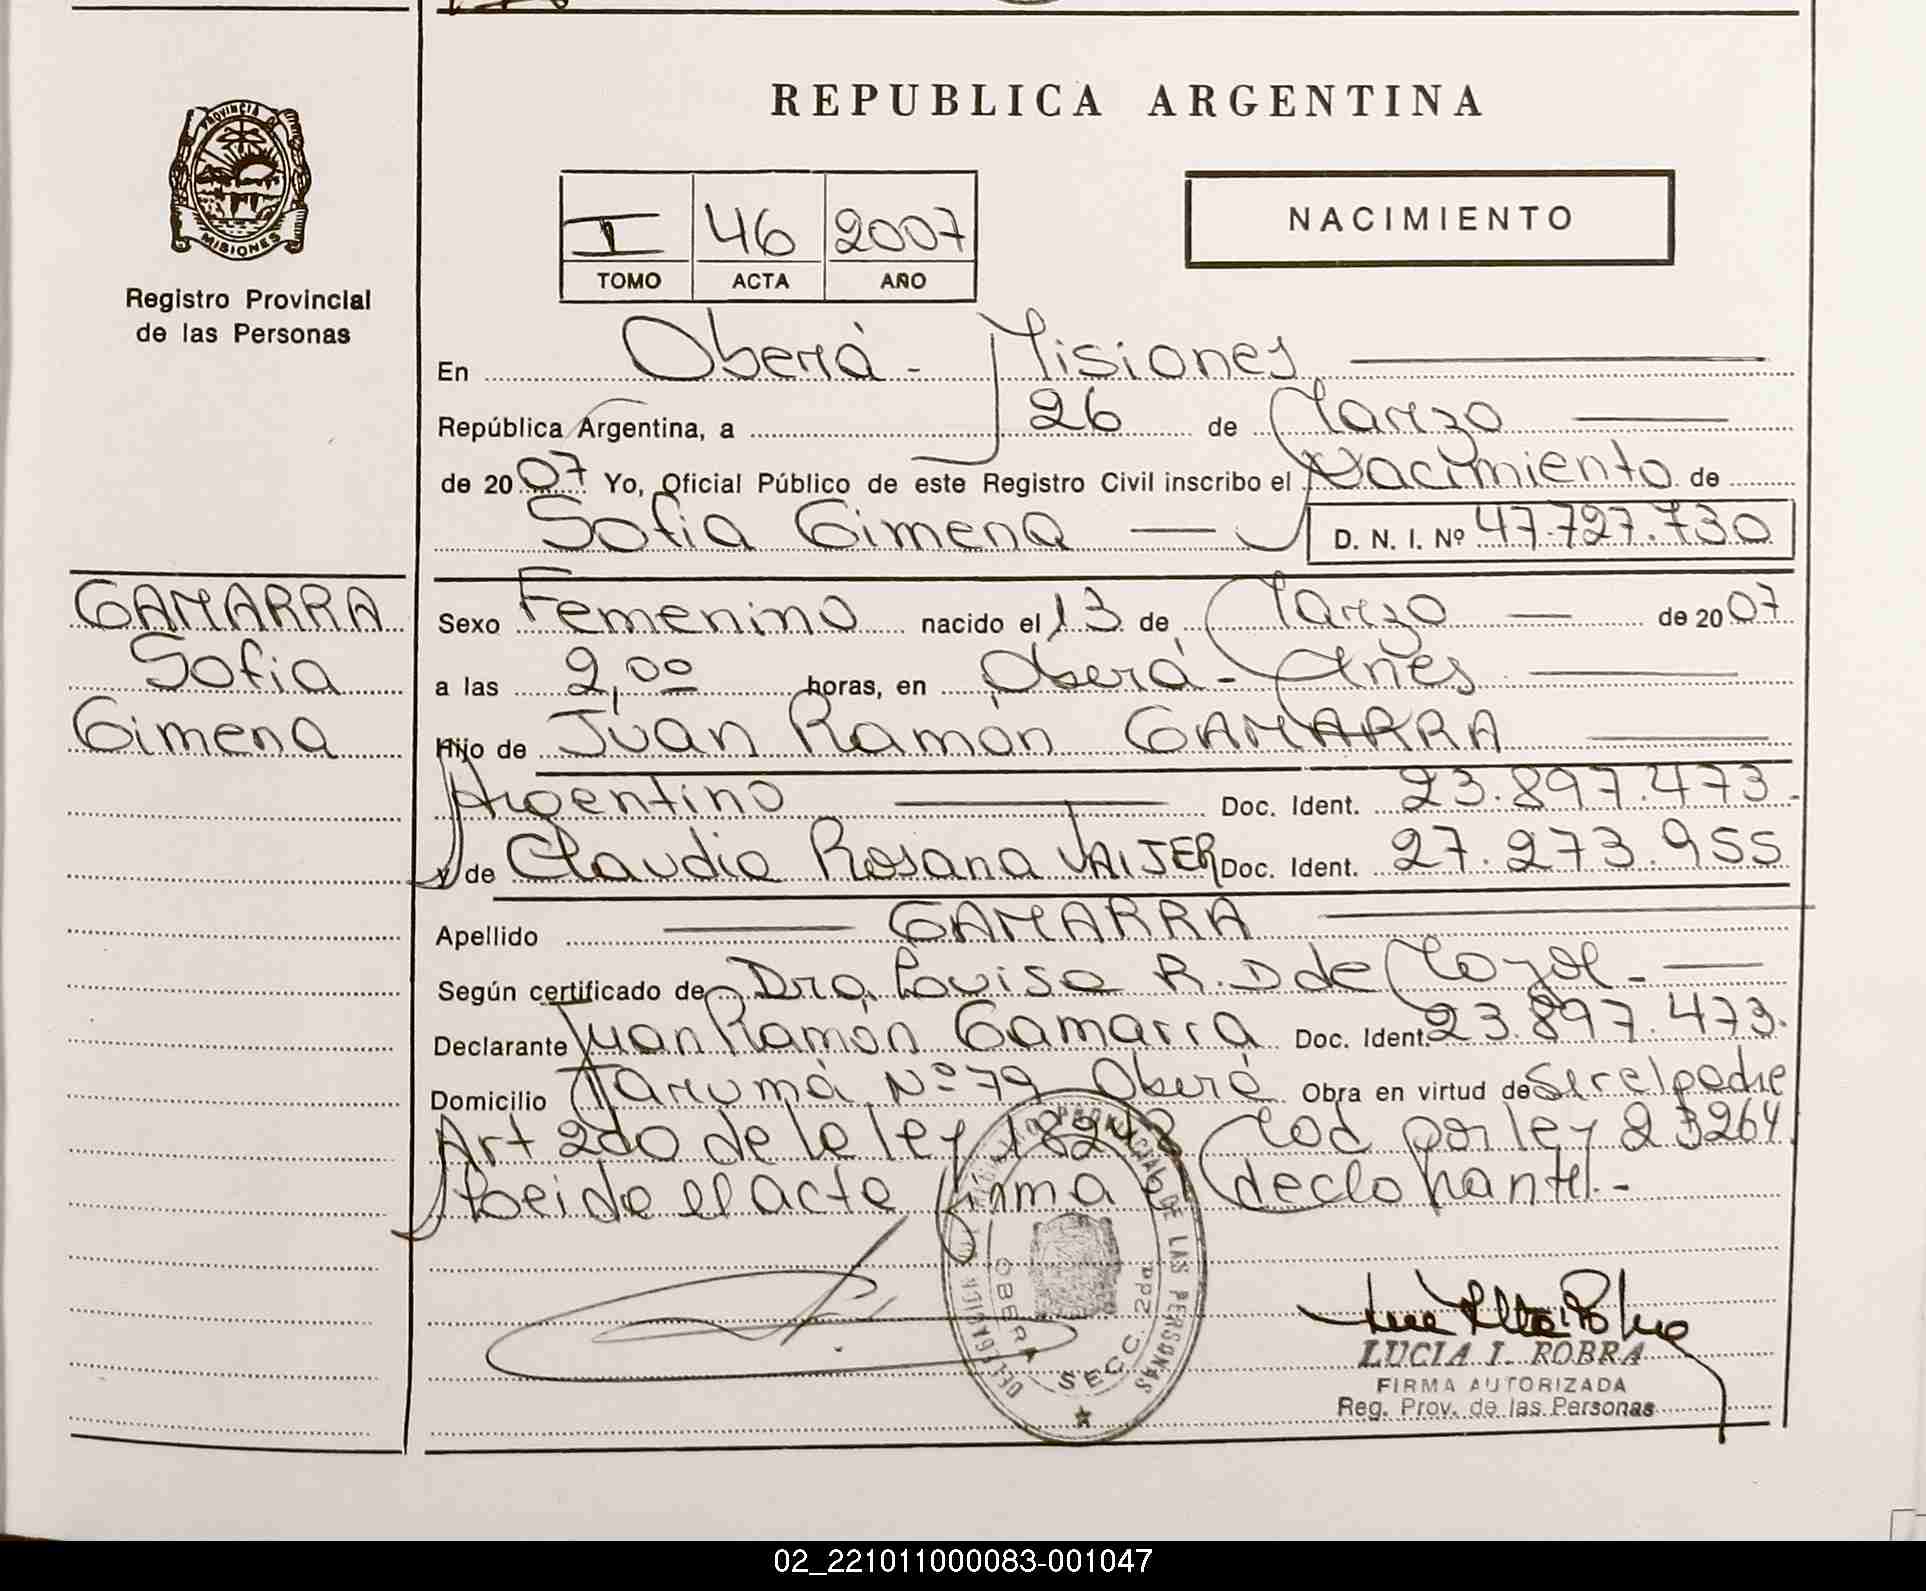 REPUBLICA ARGENTINA
PROVINCIA D
MISIONES
Registro Provincial
de las Personas
I 46 2007
TOMO ACTA AÑO
NACIMIENTO
En Oberá - Misiones
República Argentina, a 26 de Marzo
de 2007 Yo, Oficial Público de este Registro Civil inscribo el Nacimiento de
Sofia Gimena D. N. I. Nº 47.727.730
GAMARRA
Sofia
Gimena
Sexo Femenino nacido el 13 de Marzo de 2007
a las 2,00 horas, en Oberá - Mnes
Hijo de Juan Ramón GAMARRA
Argentino Doc. Ident. 23.897.473.
y de Claudia Rosana Doc. Ident. 27.273.955
Apellido GAMARRA
Según certificado de Dra. Louisa R. D de
Declarante Juan Ramón Gamarra Doc. Ident. 23.897.473.
Domicilio Tarumá Nº 79 Oberá Obra en virtud de Ser el padre
Art 2do de la ley 18248 Mod por ley 23264
Leida el acta firma el declarante.-
DELEGACION REGISTRO PROVINCIAL DE LAS PERSONAS
OBERA SECC. 2da.
LUCIA I. ROBRA
FIRMA AUTORIZADA
Reg. Prov. de las Personas
02_221011000083-001047